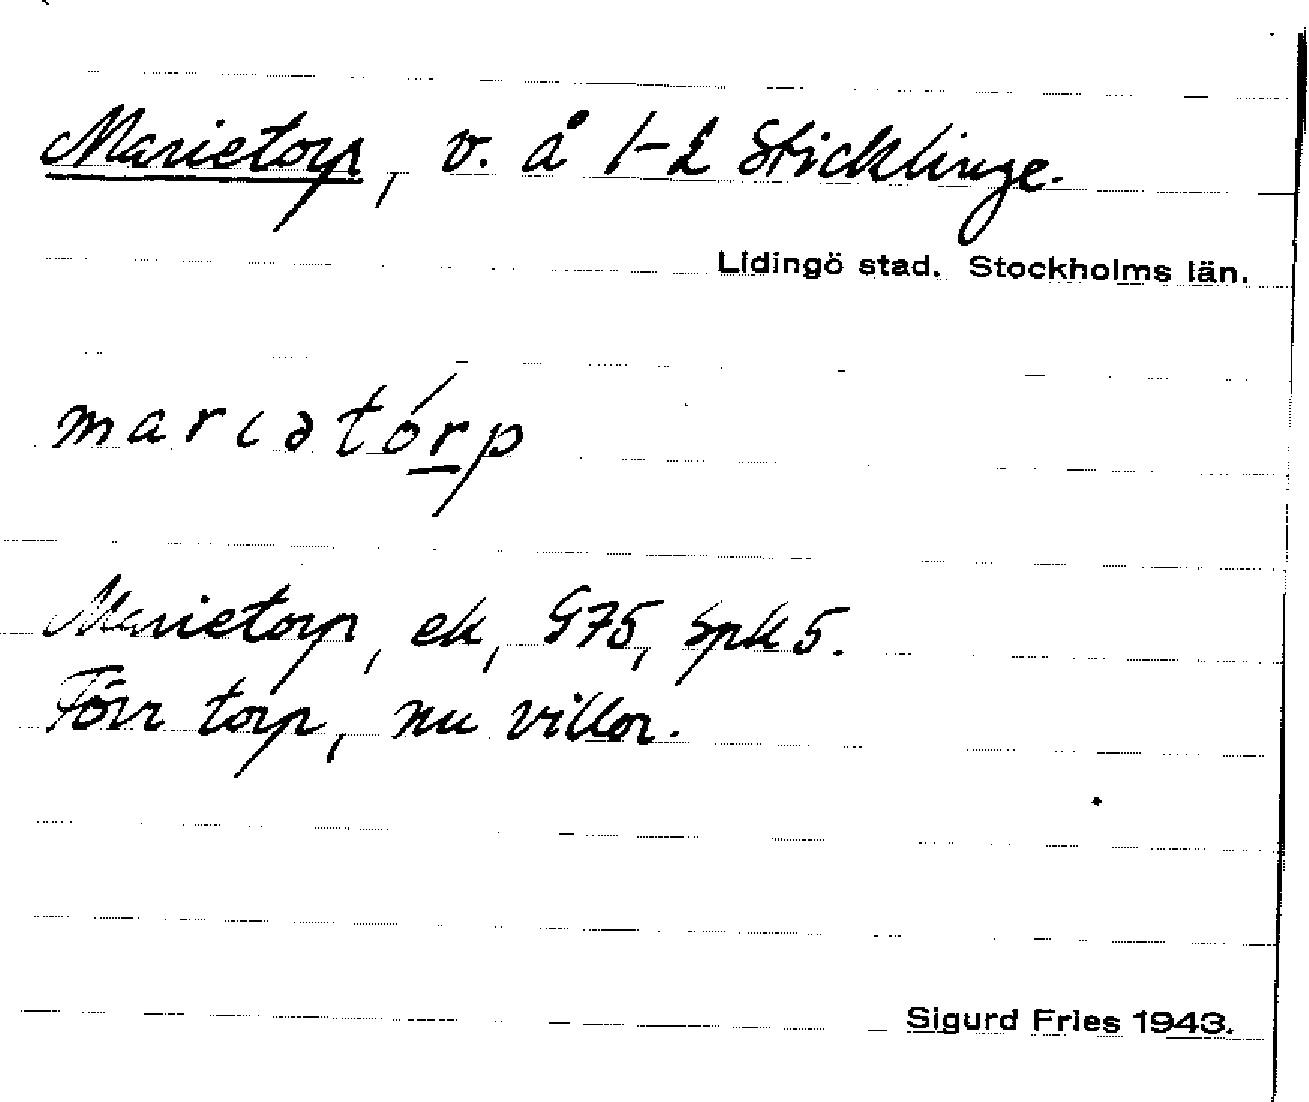 Marietorp, v. å 1-2 Sticklinge.
Lidingö stad. Stockholms län.
marıətórp
Marietorp, ek, G75, Spk 5.
Förr torp, nu villor.
Sigurd Fries 1943.